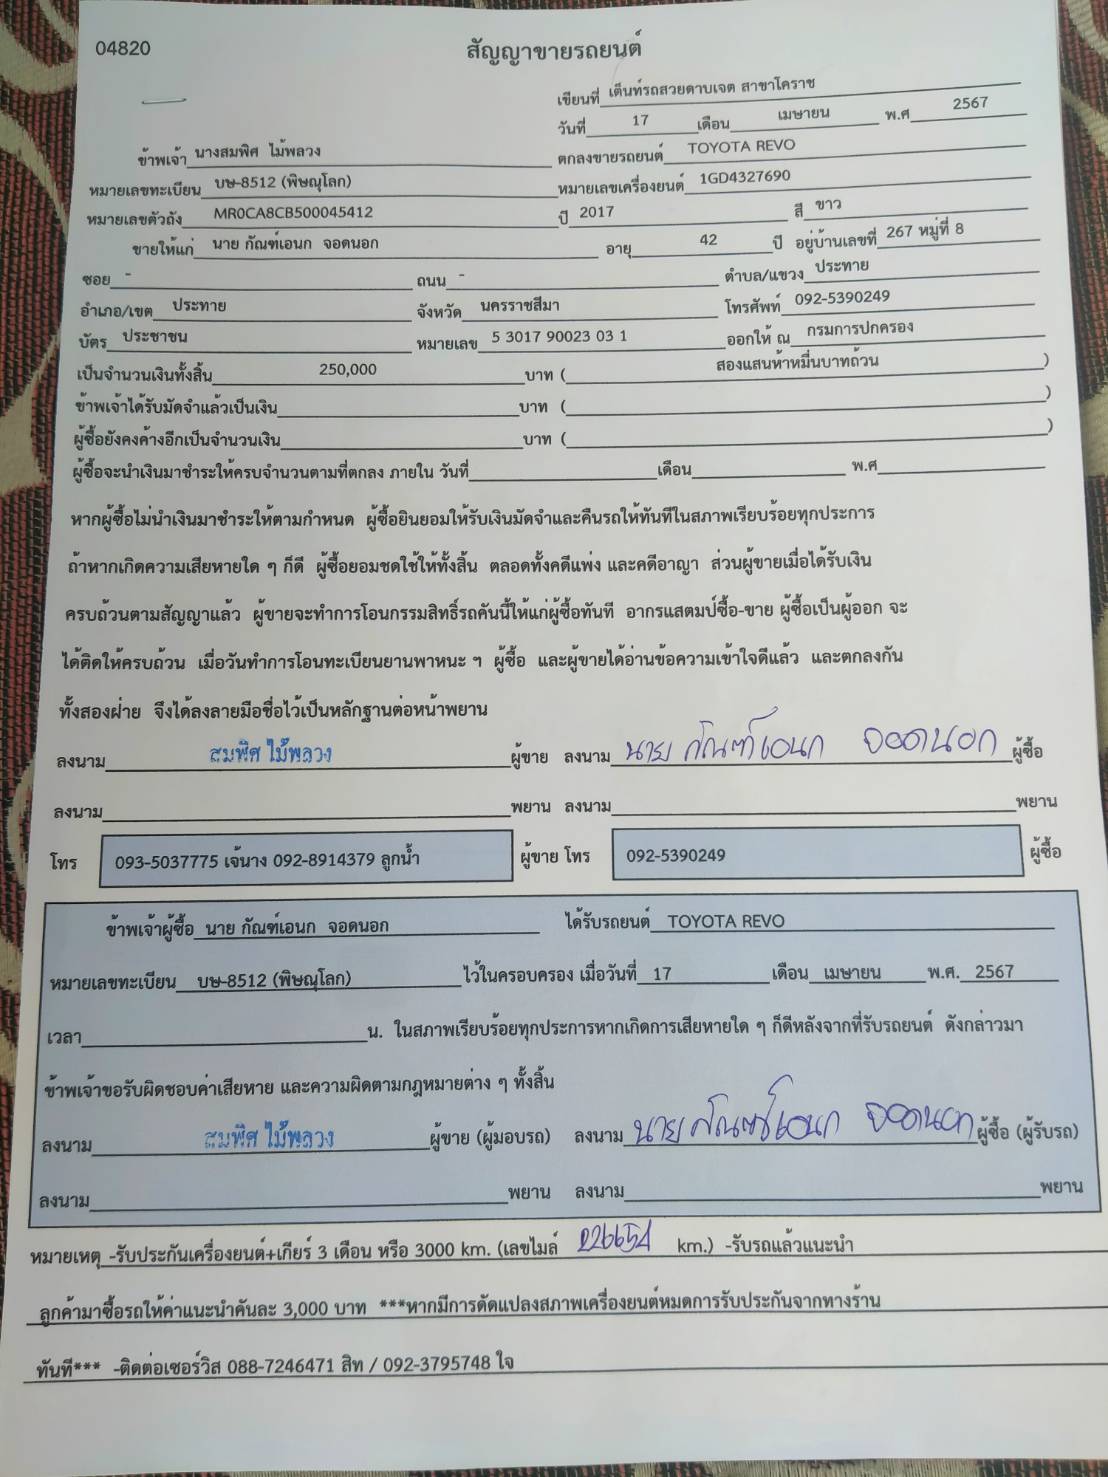 04820
สัญญาขายรถยนต์
เขียนที่ เต็นท์รถสวยดาบเจต สาขาโคราช
วันที่ 17 เดือน เมษายน พ.ศ 2567
ข้าพเจ้า นางสมพิศ ไม้พลวง ตกลงขายรถยนต์ TOYOTA REVO
หมายเลขทะเบียน บษ-8512 (พิษณุโลก) หมายเลขเครื่องยนต์ 1GD4327690
หมายเลขตัวถัง MR0CA8CB500045412 ปี 2017 สี ขาว
ขายให้แก่ นาย กัณฑ์เอนก จอดนอก อายุ 42 ปี อยู่บ้านเลขที่ 267 หมู่ที่ 8
ซอย - ถนน - ตำบล/แขวง ประทาย
อำเภอ/เขต ประทาย จังหวัด นครราชสีมา โทรศัพท์ 092-5390249
บัตร ประชาชน หมายเลข 5 3017 90023 03 1 ออกให้ ณ กรมการปกครอง
เป็นจำนวนเงินทั้งสิ้น 250,000 บาท ( สองแสนห้าหมื่นบาทถ้วน )
ข้าพเจ้าได้รับมัดจำแล้วเป็นเงิน บาท ( )
ผู้ซื้อยังคงค้างอีกเป็นจำนวนเงิน บาท ( )
ผู้ซื้อจะนำเงินมาชำระให้ครบจำนวนตามที่ตกลง ภายใน วันที่ เดือน พ.ศ
หากผู้ซื้อไม่นำเงินมาชำระให้ตามกำหนด ผู้ซื้อยินยอมให้รับเงินมัดจำและคืนรถให้ทันทีในสภาพเรียบร้อยทุกประการ
ถ้าหากเกิดความเสียหายใด ๆ ก็ดี ผู้ซื้อยอมชดใช้ให้ทั้งสิ้น ตลอดทั้งคดีแพ่ง และคดีอาญา ส่วนผู้ขายเมื่อได้รับเงิน
ครบถ้วนตามสัญญาแล้ว ผู้ขายจะทำการโอนกรรมสิทธิ์รถคันนี้ให้แก่ผู้ซื้อทันที อากรแสตมป์ซื้อ-ขาย ผู้ซื้อเป็นผู้ออก จะ
ได้ติดให้ครบถ้วน เมื่อวันทำการโอนทะเบียนยานพาหนะ ฯ ผู้ซื้อ และผู้ขายได้อ่านข้อความเข้าใจดีแล้ว และตกลงกัน
ทั้งสองฝ่าย จึงได้ลงลายมือชื่อไว้เป็นหลักฐานต่อหน้าพยาน
ลงนาม สมพิศ ไม้พลวง ผู้ขาย ลงนาม นาย กัณฑ์เอนก จอดนอก ผู้ซื้อ
ลงนาม พยาน ลงนาม พยาน
โทร 093-5037775 เจ้นาง 092-8914379 ลูกน้ำ ผู้ขาย โทร 092-5390249 ผู้ซื้อ
ข้าพเจ้าผู้ซื้อ นาย กัณฑ์เอนก จอดนอก ได้รับรถยนต์ TOYOTA REVO
หมายเลขทะเบียน บษ-8512 (พิษณุโลก) ไว้ในครอบครอง เมื่อวันที่ 17 เดือน เมษายน พ.ศ. 2567
เวลา น. ในสภาพเรียบร้อยทุกประการหากเกิดการเสียหายใด ๆ ก็ดีหลังจากที่รับรถยนต์ ดังกล่าวมา
ข้าพเจ้าขอรับผิดชอบค่าเสียหาย และความผิดตามกฎหมายต่าง ๆ ทั้งสิ้น
ลงนาม สมพิศ ไม้พลวง ผู้ขาย (ผู้มอบรถ) ลงนาม นาย กัณฑ์เอนก จอดนอก ผู้ซื้อ (ผู้รับรถ)
ลงนาม พยาน ลงนาม พยาน
หมายเหตุ -รับประกันเครื่องยนต์+เกียร์ 3 เดือน หรือ 3000 km. (เลขไมล์ 226654 km.) -รับรถแล้วแนะนำ
ลูกค้ามาซื้อรถให้ค่าแนะนำคันละ 3,000 บาท ***หากมีการดัดแปลงสภาพเครื่องยนต์หมดการรับประกันจากทางร้าน
ทันที*** -ติดต่อเซอร์วิส 088-7246471 สิท / 092-3795748 ใจ